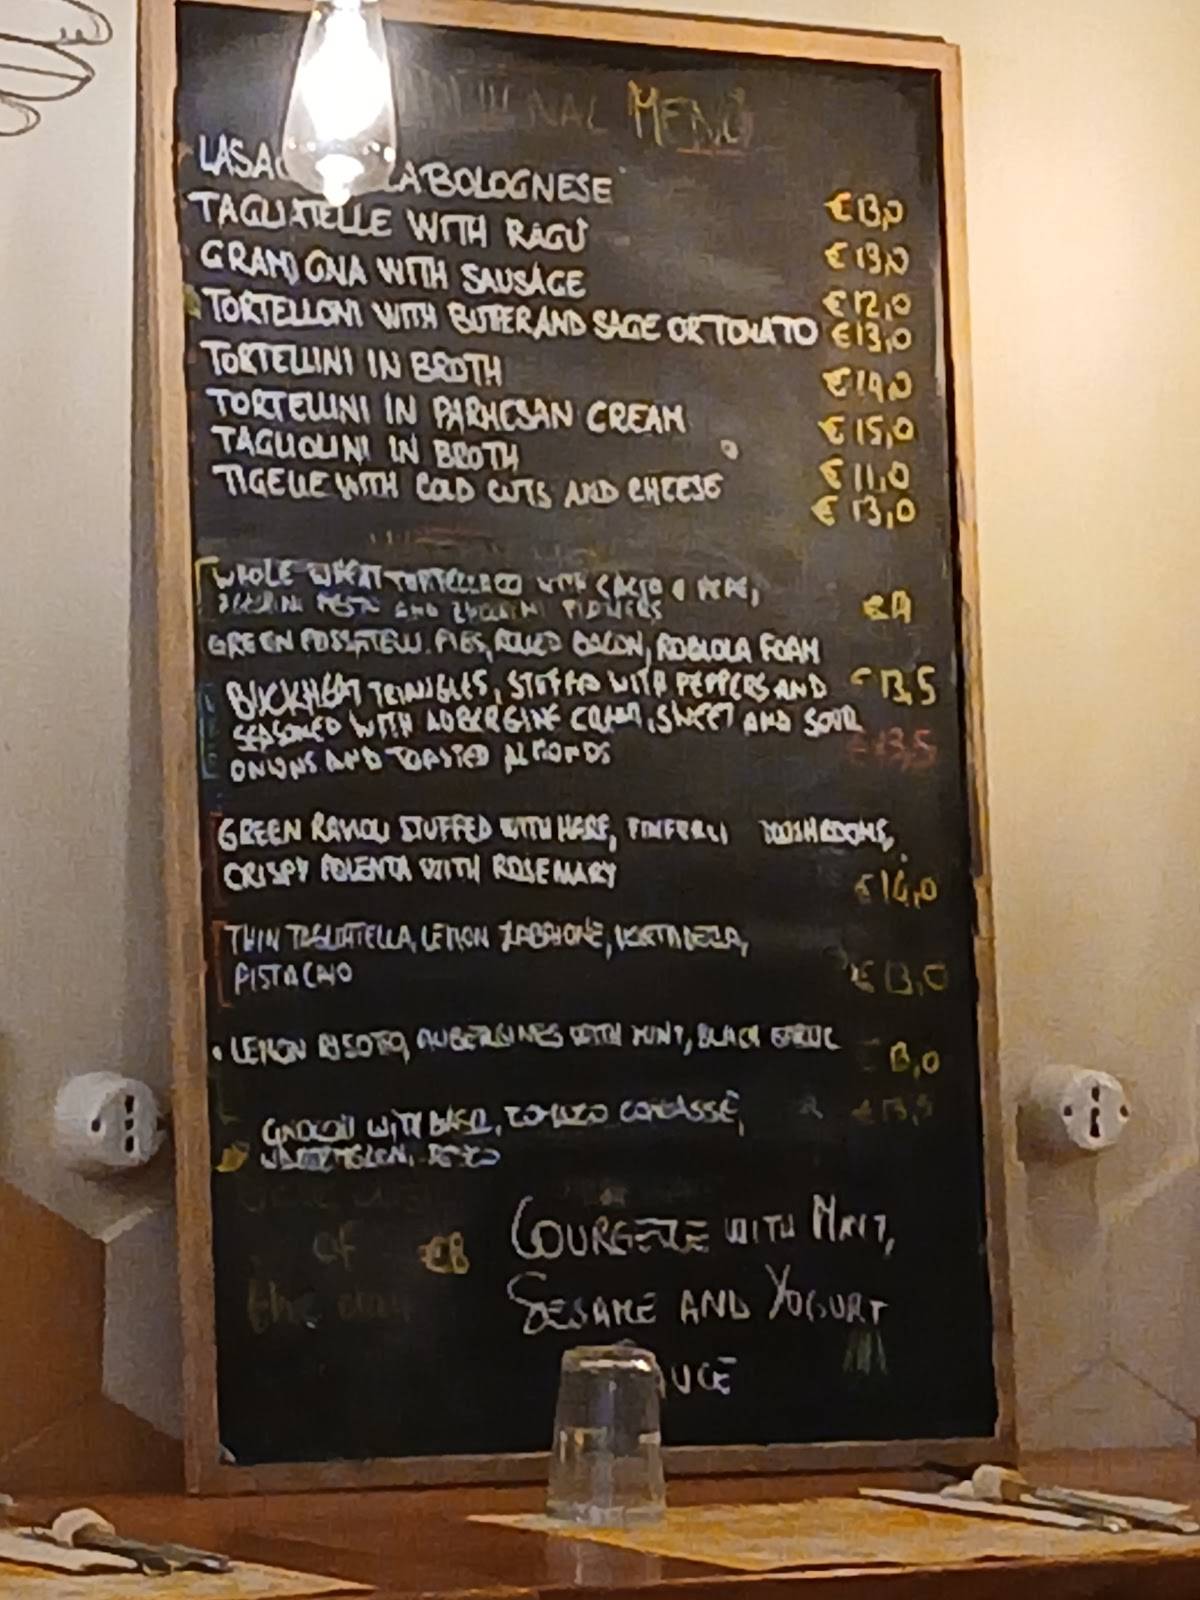 MENÙ
BOLOGNESE €13,0
TAGLIATELLE WITH RAGÙ €13,0
GRAMIGNA WITH SAUSAGE €12,0
TORTELLONI WITH BUTER AND SAGE OR TOMATO €13,0
TORTELLINI IN BROTH €14,0
TORTELLINI IN PARMESAN CREAM €15,0
TAGLIOLINI IN BROTH €11,0
TIGELLE WITH COLD CUTS AND CHEESE €13,0
WHOLE WHEAT WITH CACIO E PEPE,
PESTO AND FLOWERS
GREEN FIGS, ROLLED BACON, ROBIOLA FOAM
€13,5
TRIANGLES, STUFFED WITH PEPPERS AND
SEASONED WITH AUBERGINE CREAM, SWEET AND SOUR
€13,5
ONIONS AND TOASTED ALMONDS
GREEN RAVIOLI STUFFED WITH HARE, FINFERLI MUSHROOMS,
CRISPY POLENTA WITH ROSEMARY €14,0
THIN TAGLIATELLA, LEMON ZABAIONE,
PISTACHIO €13,0
LEMON AUBERGINES WITH MINT, BLACK GARLIC
GNOCCHI WITH BASIL, CONCASSÈ, €13,5
of
the day
€8
COURGETTE WITH MINT,
SESAME AND YOGURT